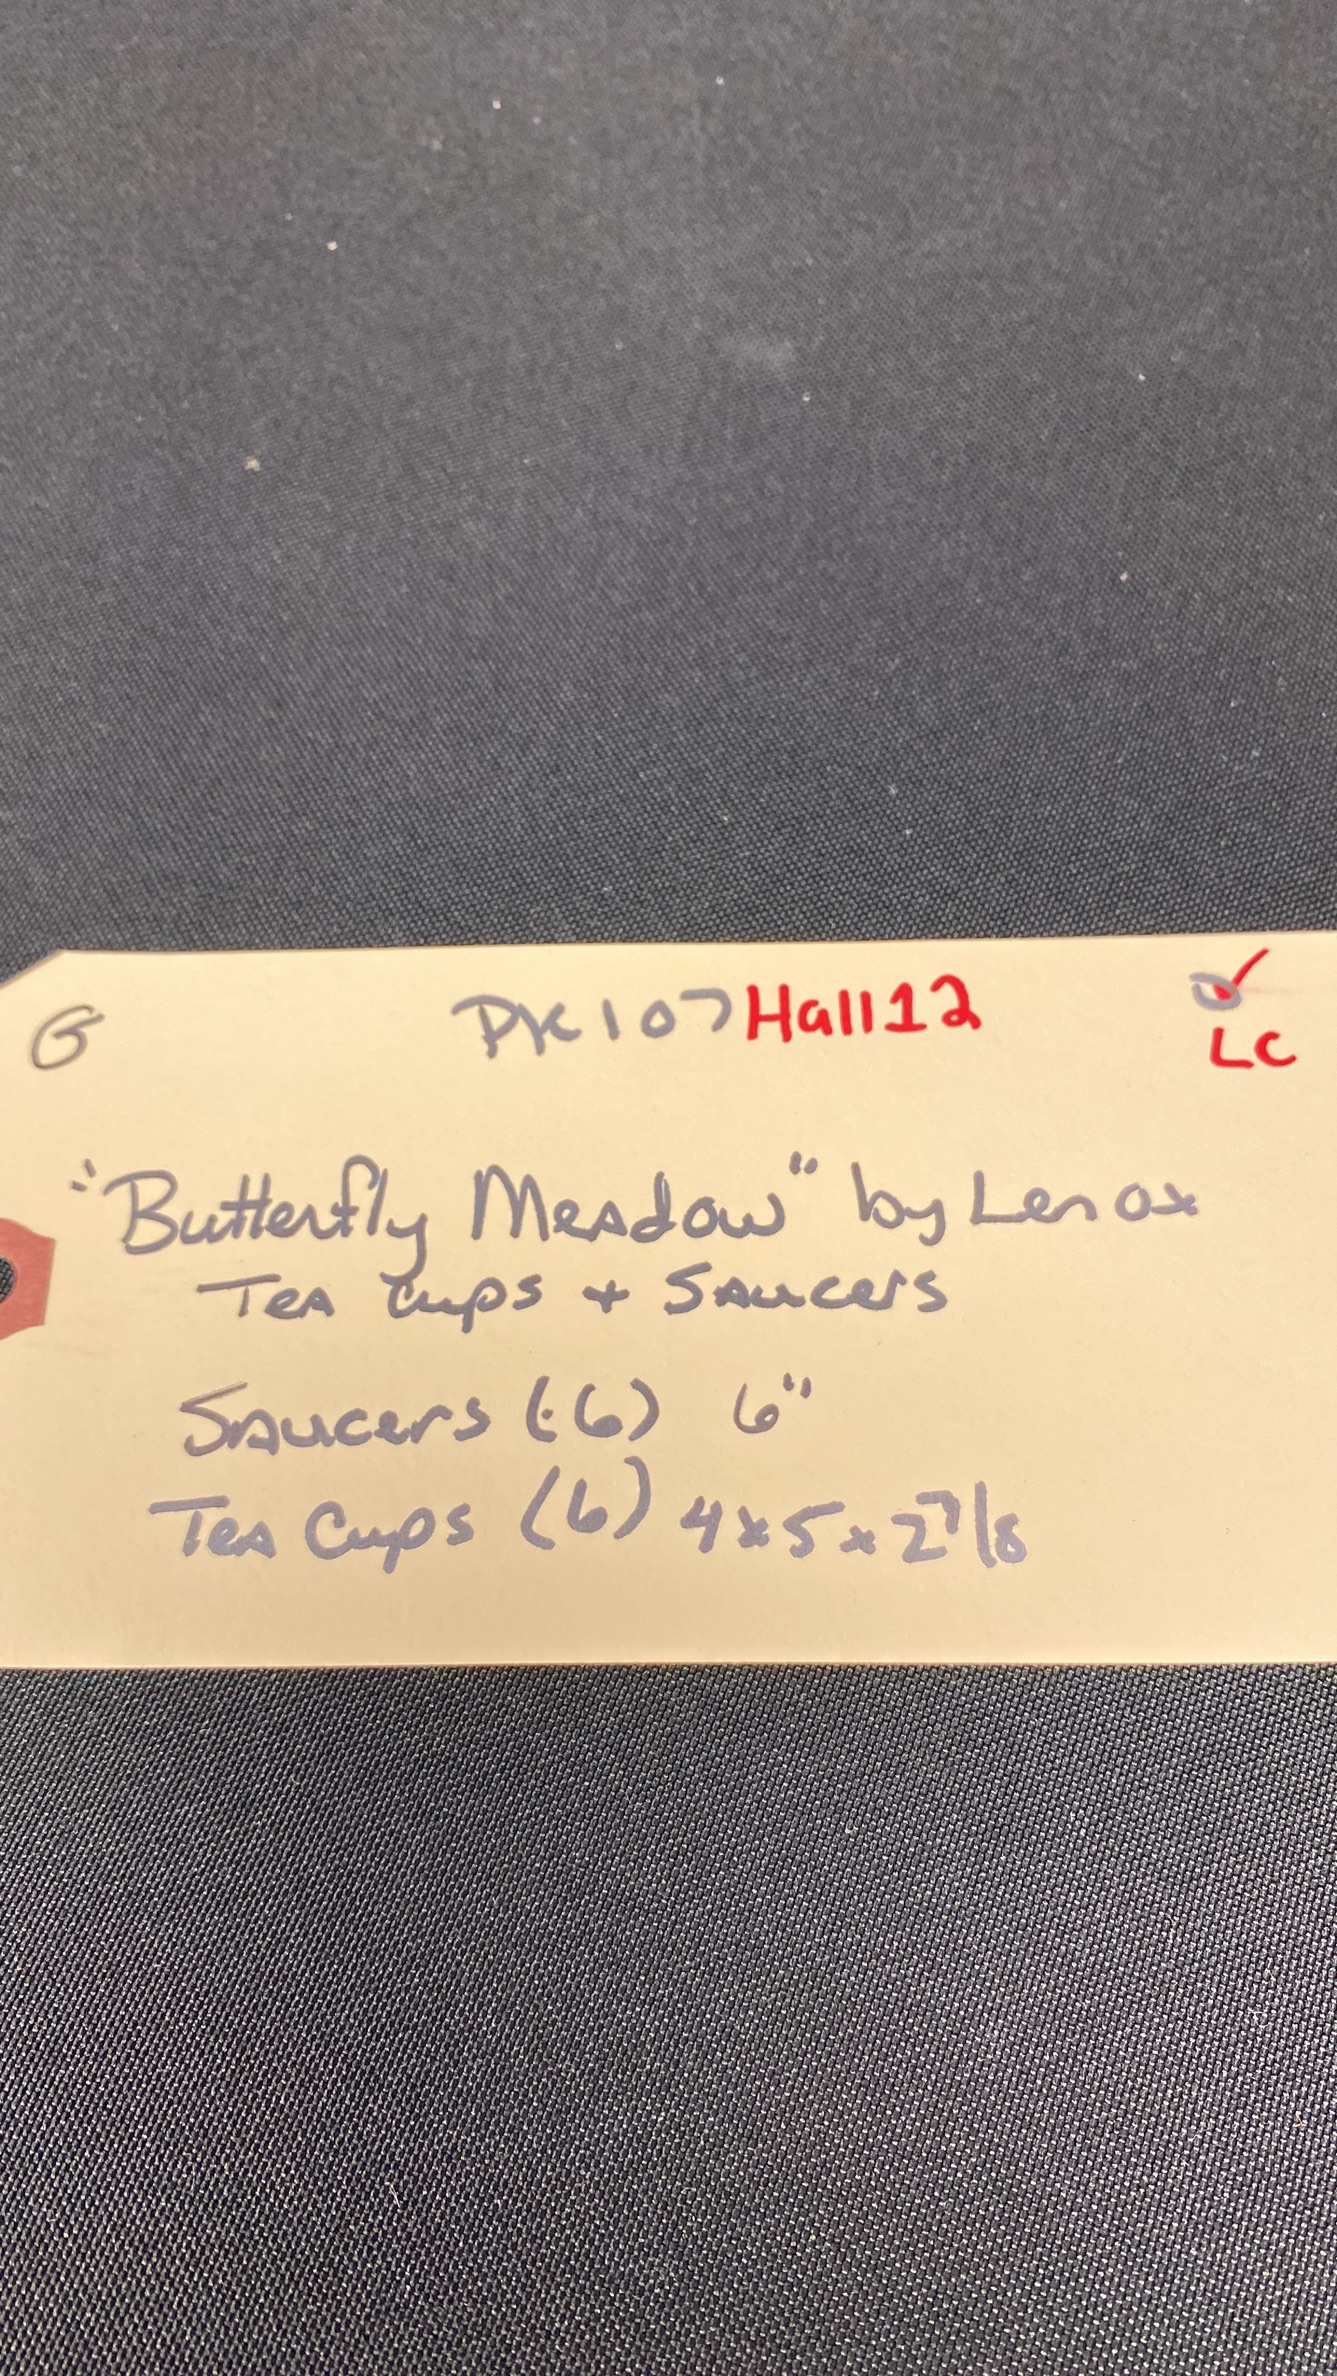 G PK107Hall12 ✓
LC
"Butterfly Meadow" by Lenox
Tea Cups + Saucers
Saucers (6) 6"
Tea Cups (6) 4x5x2 7/8